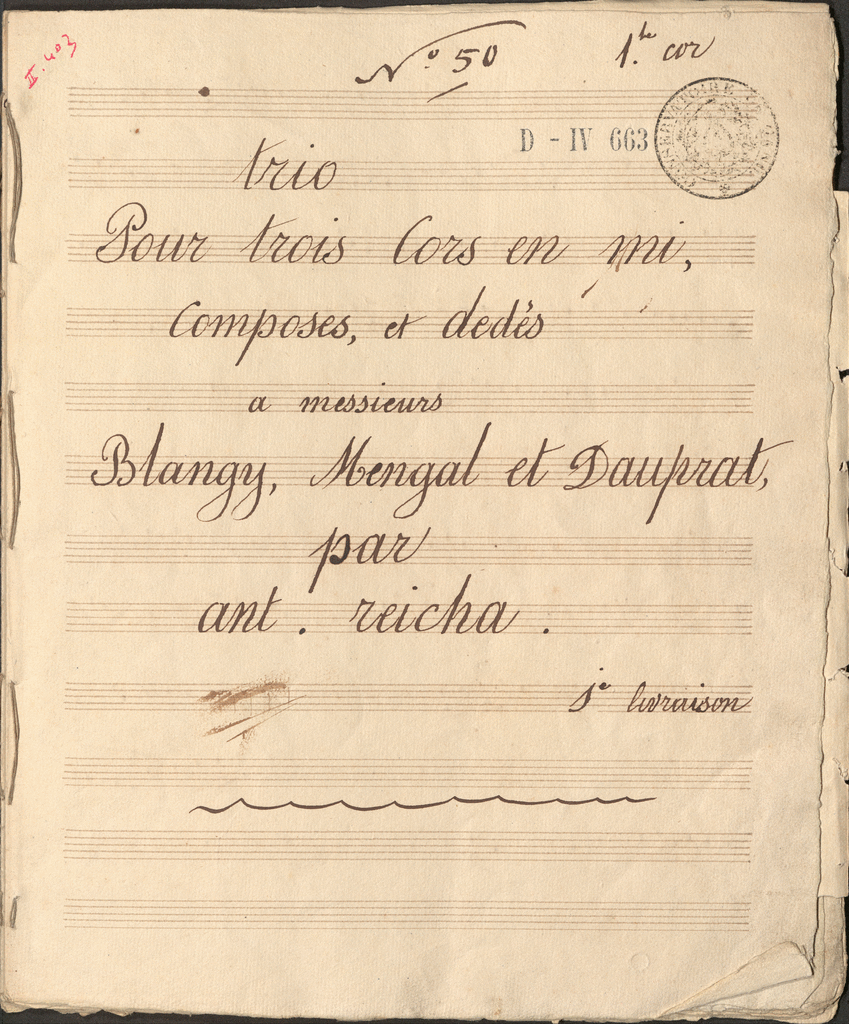 II. 403
N.° 50
1.te cor
D - IV 663
trio
Pour trois Cors en mi,
Composes, et dedés
a messieurs
Blangy, Mengal et Dauprat,
par
ant. reicha.
1e livraison